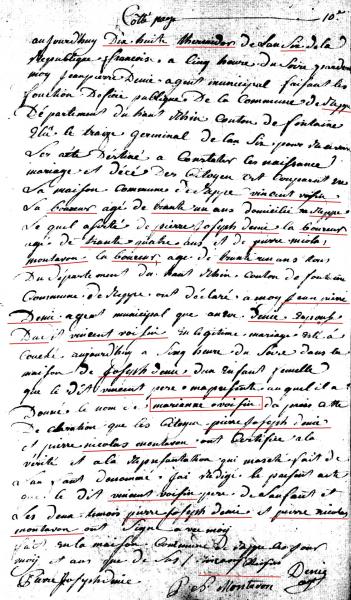 Cotté 10e
aujourdhuy Dix huite thermidor de Lan Six de la
Republique francois a Cinq heure du Soire pardevan
moy Jeanpierre Denie agent municipal faisant les
fonction Dofficie publique De la Commune de Reppe
Département du haut Rhin Canton de fontaine
Elû le traize germinal de lan Six pour Recevoir
Les acte Destiné a Constater les naissance
mariage et décé des Citoyen est Comparut en
La maison Commune de Reppe vincent voisin
La boureur agé de trante un ans domicilié a Reppe
Le quel asisté de pierre Joseph denie la boureur
agé de trante quatre ans et de pierre nicolas
montavon la boureur agé de trante un ans tous
Du département du haut Rhin Canton de fontaine
Commune de Reppe ont déclaré a moy Jean pierre
Denie agent municipal que anne Denie Epouse
Du dit vincent voisin En légitime mariage Est a
Couché aujourdhuy a Sinq heure du Soire dans la
maison de Joseph denie d'un Enfant femelle
que le Dit vincent pere ma présenté au quel il a
Donné le nom de marianne voisin Da prais cette
De claration que les Citoyen pierre Joseph denie
et pierre nicolas montavon ont Certifié a la
vérité et a la Représantation qui marét fait de
L'an fant denommé Jai Redigé le présent acte
que le Dit vincent voisin pere de Lanfant et
Les deux temois pierre Joseph denie et pierre nicolas
montavon ont Signé avec moy
fait En la maison Commune de Reppe les jour
moy et ans que de Sus vincent voisin
Pierre Joseph denie P N Montavon Denie agt